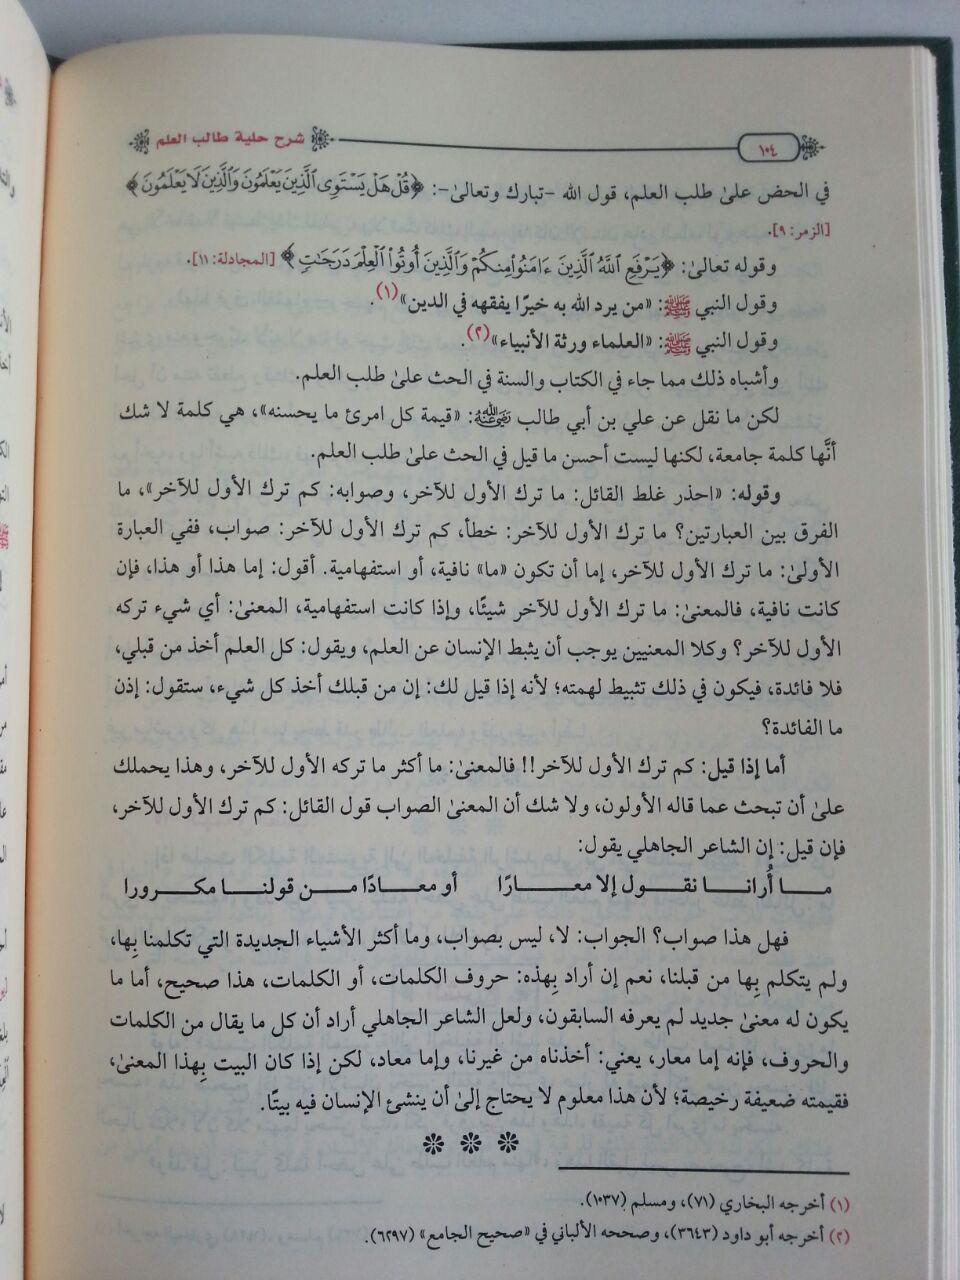 ١٠٤
شرح حلية طالب العلم
في الحض علىٰ طلب العلم، قول الله -تبارك وتعالىٰ-: ﴿قُلْ هَلْ يَسْتَوِى ٱلَّذِينَ يَعْلَمُونَ وَٱلَّذِينَ لَا يَعْلَمُونَ﴾
[الزمر: ٩].
وقوله تعالىٰ: ﴿يَرْفَعِ ٱللَّهُ ٱلَّذِينَ ءَامَنُوا۟ مِنكُمْ وَٱلَّذِينَ أُوتُوا۟ ٱلْعِلْمَ دَرَجَٰتٍ﴾ [المجادلة: ١١].
وقول النبي ﷺ: «من يرد الله به خيرًا يفقهه في الدين»(١).
وقول النبي ﷺ: «العلماء ورثة الأنبياء»(٢).
وأشباه ذلك مما جاء في الكتاب والسنة في الحث علىٰ طلب العلم.
لكن ما نقل عن علي بن أبي طالب رضي الله عنه: «قيمة كل امرئ ما يحسنه»، هي كلمة لا شك
أنَّها كلمة جامعة، لكنها ليست أحسن ما قيل في الحث علىٰ طلب العلم.
وقوله: «احذر غلط القائل: ما ترك الأول للآخر، وصوابه: كم ترك الأول للآخر»، ما
الفرق بين العبارتين؟ ما ترك الأول للآخر: خطأ، كم ترك الأول للآخر: صواب، ففي العبارة
الأولىٰ: ما ترك الأول للآخر، إما أن تكون «ما» نافية، أو استفهامية. أقول: إما هذا أو هذا، فإن
كانت نافية، فالمعنىٰ: ما ترك الأول للآخر شيئًا، وإذا كانت استفهامية، المعنىٰ: أي شيء تركه
الأول للآخر؟ وكلا المعنيين يوجب أن يثبط الإنسان عن العلم، ويقول: كل العلم أخذ من قبلي،
فلا فائدة، فيكون في ذلك تثبيط لهمته؛ لأنه إذا قيل لك: إن من قبلك أخذ كل شيء، ستقول: إذن
ما الفائدة؟
أما إذا قيل: كم ترك الأول للآخر!! فالمعنىٰ: ما أكثر ما تركه الأول للآخر، وهذا يحملك
علىٰ أن تبحث عما قاله الأولون، ولا شك أن المعنىٰ الصواب قول القائل: كم ترك الأول للآخر،
فإن قيل: إن الشاعر الجاهلي يقول:
مـا أُرانـا نقـول إلا معـارًا أو معـادًا مـن قولنـا مكـرورا
فهل هذا صواب؟ الجواب: لا، ليس بصواب، وما أكثر الأشياء الجديدة التي تكلمنا بِها،
ولم يتكلم بِها من قبلنا، نعم إن أراد بِهذه: حروف الكلمات، أو الكلمات، هذا صحيح، أما ما
يكون له معنىٰ جديد لم يعرفه السابقون، ولعل الشاعر الجاهلي أراد أن كل ما يقال من الكلمات
والحروف، فإنه إما معار، يعني: أخذناه من غيرنا، وإما معاد، لكن إذا كان البيت بِهذا المعنىٰ،
فقيمته ضعيفة رخيصة؛ لأن هذا معلوم لا يحتاج إلىٰ أن ينشئ الإنسان فيه بيتًا.
(١) أخرجه البخاري (٧١)، ومسلم (١٠٣٧).
(٢) أخرجه أبو داود (٣٦٤٣)، وصححه الألباني في «صحيح الجامع» (٦٢٩٧).